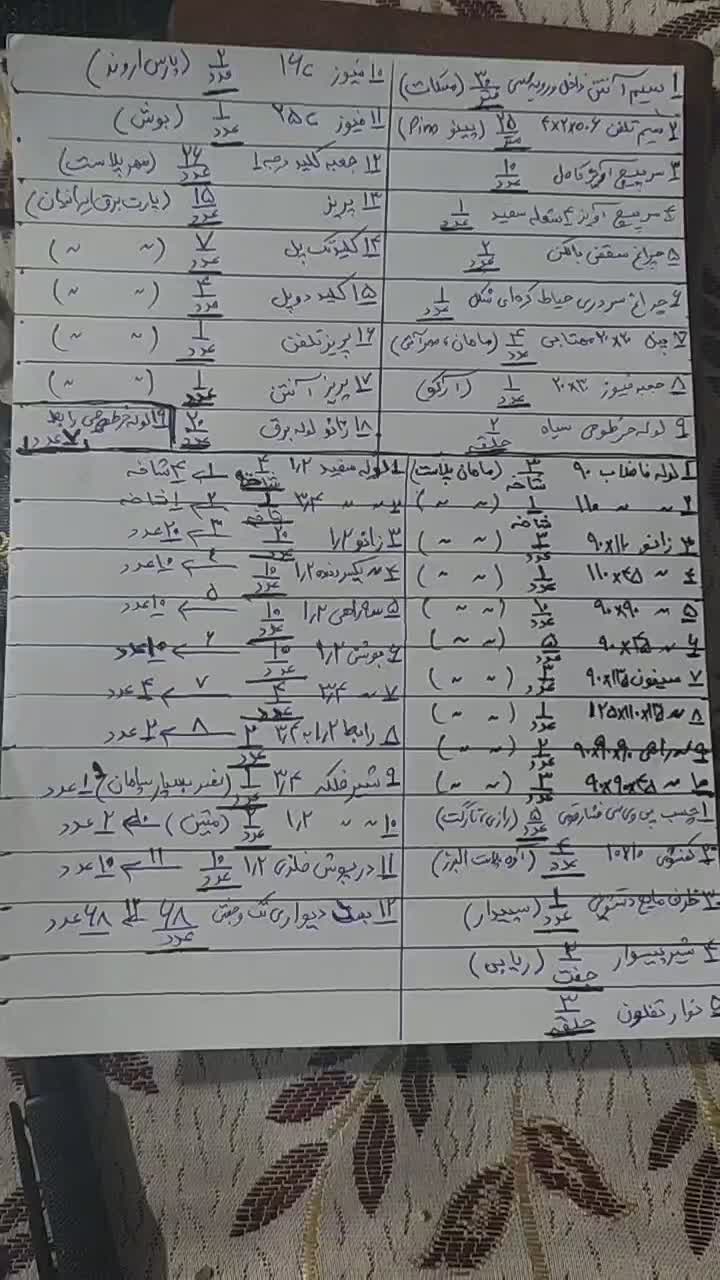 ۱ سیم آنتن داخل و رویه مسی ۳۰ متر (مسکات)
۲ سیم تلفن ۴x۲x۰.۰۶ ۲۵ متر (پینو Pino)
۳ سرپیچ آویز کامل ۱۰ عدد
۴ سرپیچ آویز ۴ شعله سفید ۱ عدد
۵ چراغ سقفی بالکن ۲ عدد
۶ چراغ سردری حیاط کره‌ای شکل ۱ عدد
۷ پنل ۲۰x۲۰ مهتابی ۴ عدد
۸ جعبه فیوز ۲۰x۳۰ ۱ عدد
۹ لوله خرطومی سیاه ۲ حلقه
۱۰ فیوز ۱۶c ۲ عدد (پارس اروند)
۱۱ فیوز ۲۵c ۱ عدد (بوش)
۱۲ جعبه کلید درجه ۱ ۲۶ عدد (مهر پلاست)
۱۳ پریز ۱۵ عدد (پارت برق ایرانیان)
۱۴ کلید تک پل ۷ عدد (~ ~)
۱۵ کلید دو پل ۴ عدد (~ ~)
۱۶ پریز تلفن ۱ عدد (~ ~)
۱۷ پریز آنتن ۱ عدد (~ ~)
۱۸ زانو لوله برق ۲۰ عدد
۱۹ لوله خرطومی رابط ۷ عدد
۱ لوله فاضلاب ۹۰ ۳ شاخه (سامان پلاست)
۲ ~ ~ ۱۱۰ ۱ شاخه (~ ~)
۳ زانو ۹۰x۱۱۰ ۳ عدد (~ ~)
۴ ~ ۱۱۰x۴۵ ۱ عدد (~ ~)
۵ ~ ۹۰x۹۰ ۷ عدد (~ ~)
۶ ~ ۹۰x۴۵ ۵ عدد (~ ~)
۷ سیفون ۹۰x۱۲۵ ۳ عدد (~ ~)
۸ ~ ۱۲۵x۱۱۰x۱۲۵ ۱ عدد (~ ~)
۹ سه راهی ۹۰x۹۰x۹۰ ۲ عدد (~ ~)
۱۰ ~ ۹۰x۹۰x۴۵ ۳ عدد (~ ~)
۱ چسب پی وی سی فشار قوی ۵ عدد (رازی تارگت)
۲ کفشوی ۱۰x۱۰ ۴ عدد
۳ ظرف مایع دستشویی ۱ عدد (سپیدار)
۴ شیر پیسوار ۲ جفت
۵ نوار تفلون ۳ حلقه
۱ لوله سفید ۱٫۲ ۴ شاخه ۱ ← ۴ شاخه
۲ ~ ~ ۳٫۴ ۱ شاخه ۲ ← ۱ شاخه
۳ زانو ۱٫۲ ۲۰ عدد ۳ ← ۲۰ عدد
۴ ~ یکسر دنده ۱٫۲ ۱۰ عدد ۴ ← ۱۰ عدد
۵ سه راهی ۱٫۲ ۱۰ عدد ۵ ← ۱۰ عدد
۶ بوش ۱٫۲ ۱۰ عدد ۶ ← ۱۰ عدد
۷ ~ ۳٫۴ ۴ عدد ۷ ← ۴ عدد
۸ رابط ۱٫۲ به ۳٫۴ ۲ عدد ۸ ← ۲ عدد
۹ شیر فلکه ۳٫۴ ۱ عدد ۹ ۱ عدد
۱۰ ~ ~ ۱٫۲ ۲ عدد (متین) ۱۰ ← ۲ عدد
۱۱ درپوش فلزی ۱٫۲ ۱۰ عدد ۱۱ ← ۱۰ عدد
۱۲ بست دیواری تک و جفتی ۶۸ عدد ۱۲ ← ۶۸ عدد